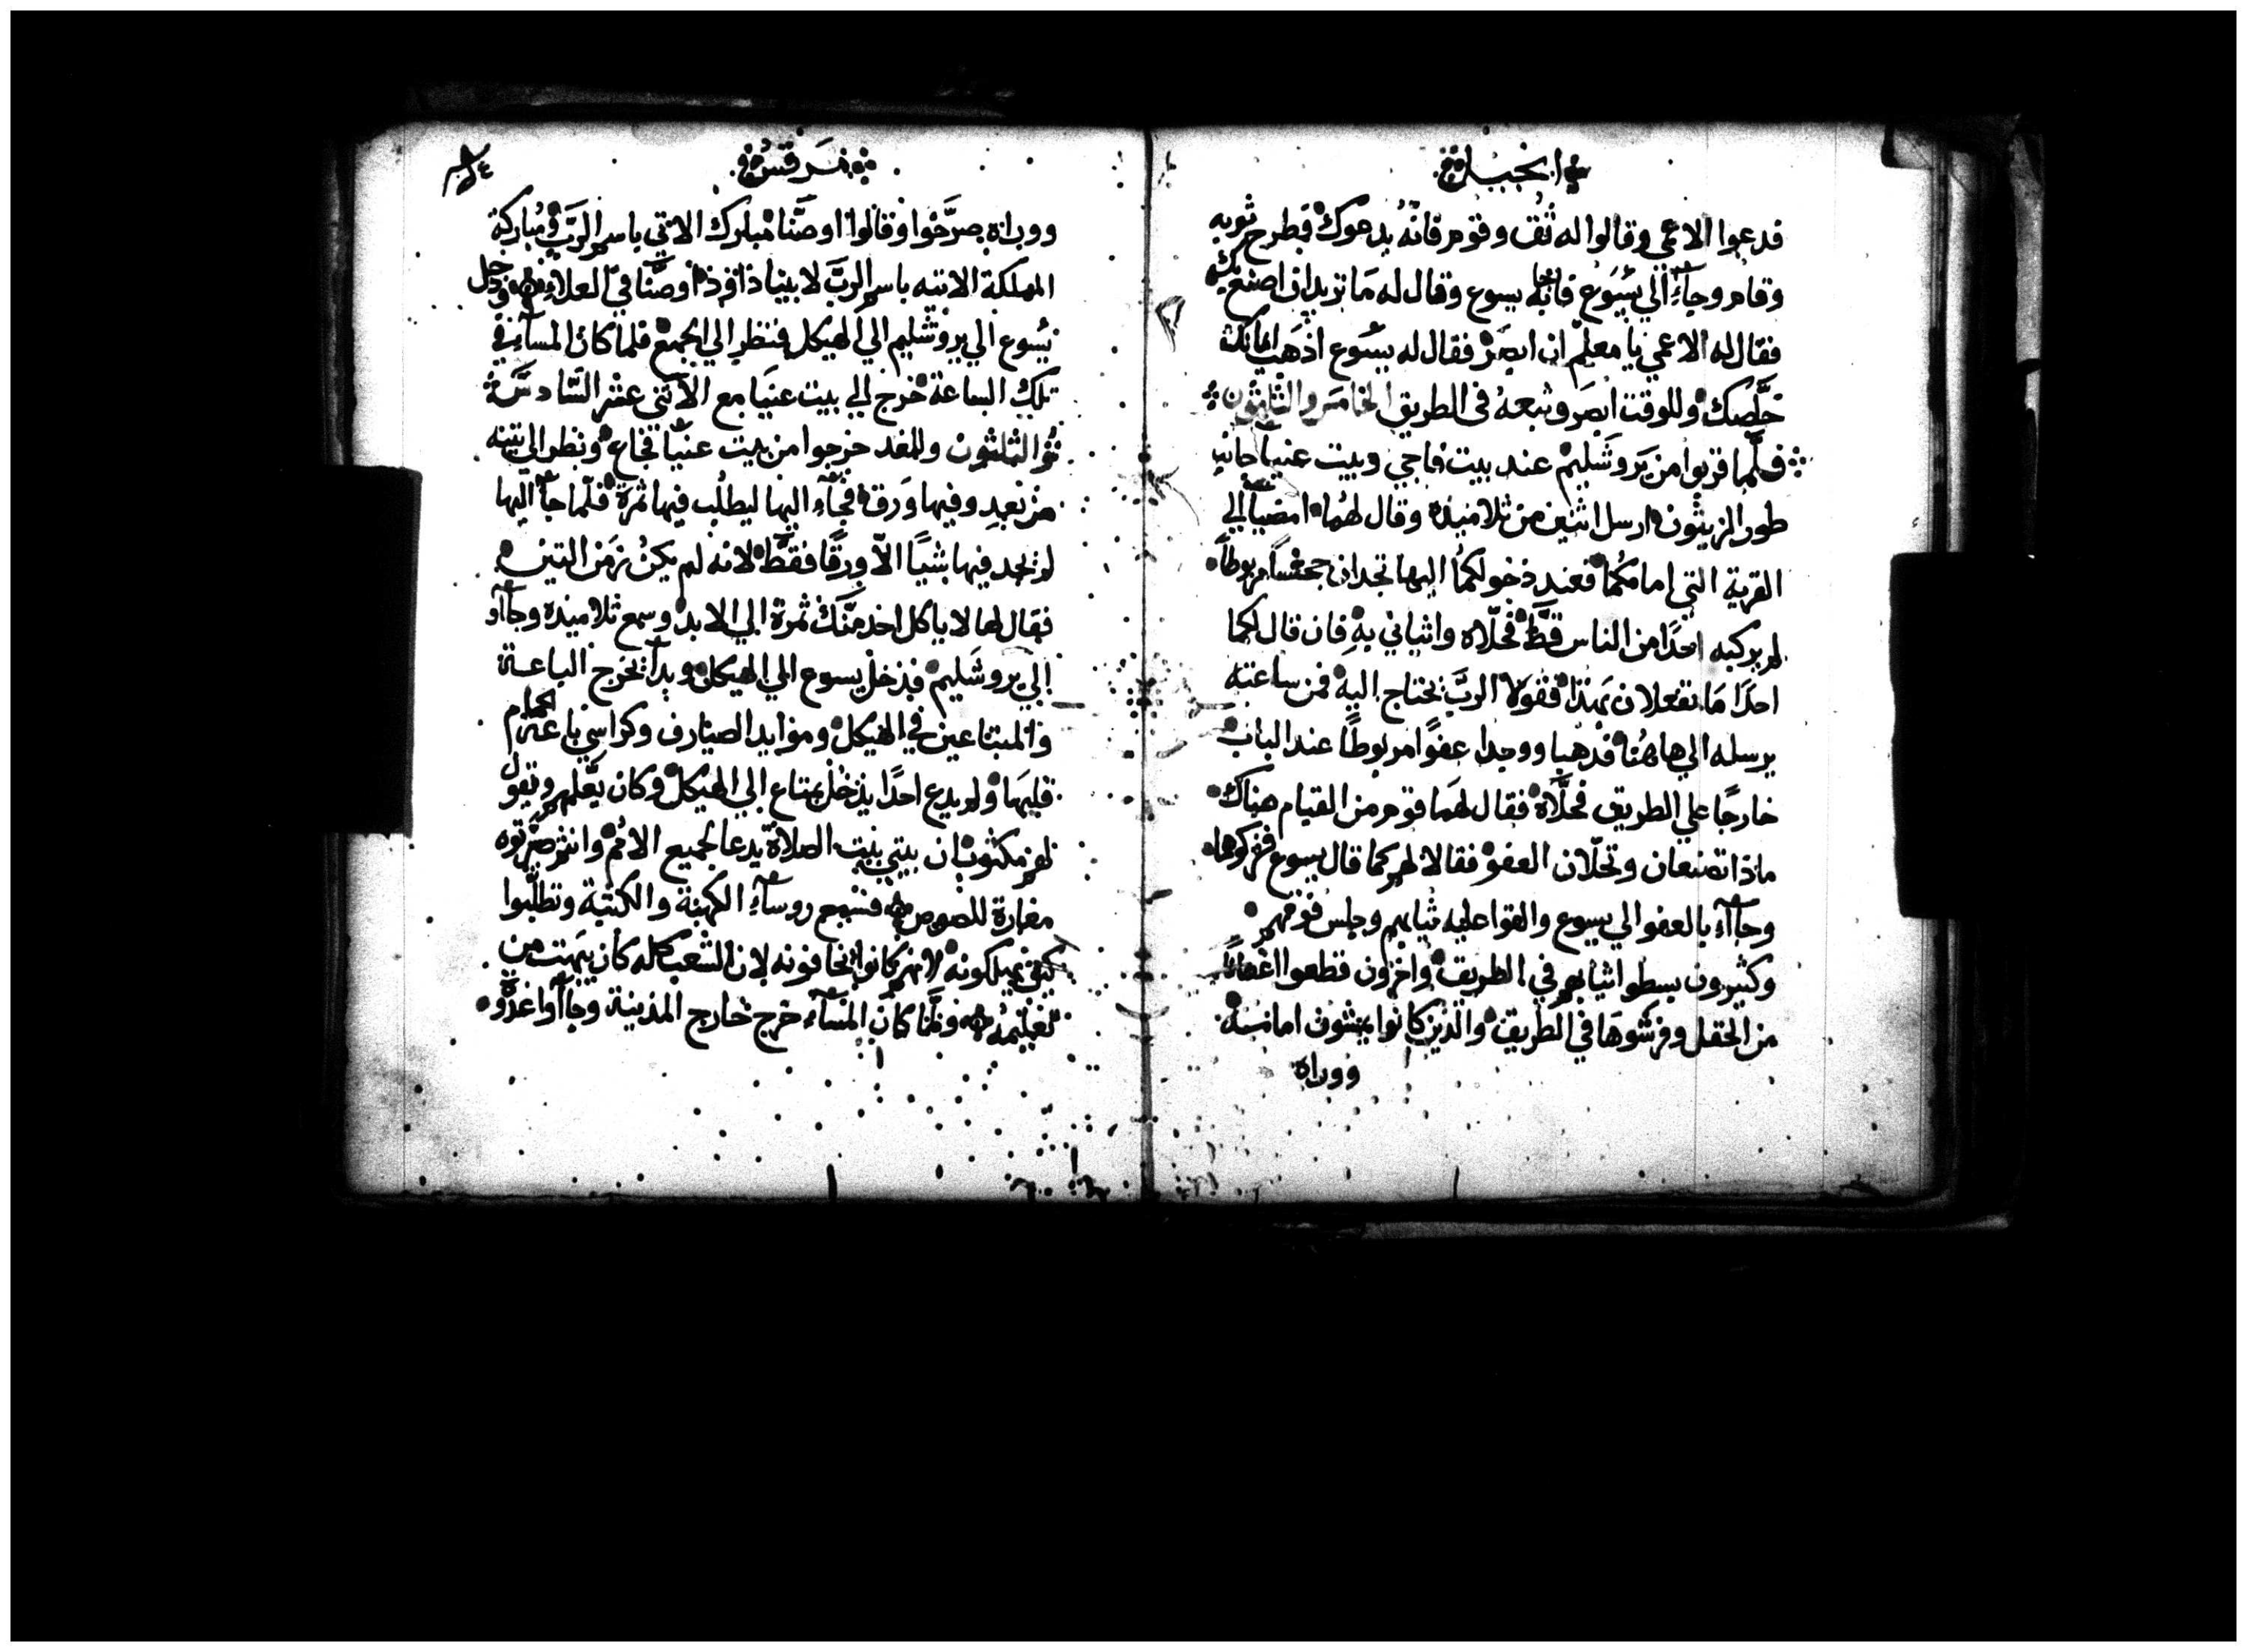 انجيل
فدعوا الاعمي وقالوا له ثق وقوم فانه يدعوك فطرح ثوبه
وقام وجاء الي يسوع فاجابه يسوع وقال له ما تريد ان اصنع بك
فقال له الاعمي يا معلم ان ابصر فقال له يسوع اذهب ايمانك
خلصك وللوقت ابصر وتبعه في الطريق الخامس والثلثون
فلما قربوا من يروشليم عند بيت فاجي وبيت عنيا جانب
طور الزيتون ارسل اثنين من تلاميذه وقال لهما امضيا الي
القرية التي امامكما فعند دخولكما اليها تجدان جحشا مربوطا
لم يركبه احدا من الناس قط فحلاه واتياني به فان قال لكما
احدا ما تفعلان بهذا فقولا الرب يحتاج اليه فمن ساعته
يرسله الي هاهنا فذهبا ووجدا عفوا مربوطا عند الباب
خارجا علي الطريق فحلاه فقال لهما قوم من القيام هناك
ماذا تصنعان وتحلان العفو فقالا لهم كما قال يسوع فتركوهما
وجاآء بالعفو الي يسوع والقوا عليه ثيابهم وجلس فوقهم
وكثيرون بسطوا ثيابهم في الطريق واخرون قطعوا اغصانا
من الحقل وفرشوها في الطريق والذين كانوا يمشون امامه
ووراه
مرقس
ووراه صرخوا وقالوا اوصنا مبارك الاتي باسم الرب ومباركة
المملكة الاتيه باسم الرب لابينا داوود اوصنا في العلاء ودخل
يسوع الي يروشليم الي الهيكل فنظر الي الجميع فلما كان المساء في
تلك الساعة خرج الي بيت عنيا مع الاثني عشر السادسة
والثلثون وللغد خرجوا من بيت عنيا فجاع ونظر الي تينه
من بعد وفيها ورق فجاء اليها ليطلب فيها ثمرة فلما جاء اليها
لم يجد فيها شيا الا ورقا فقط لانه لم يكن زمن التين
فقال لها لا ياكل احد منك ثمرة الي الابد وسمع تلاميذه وجاآو
الي يروشليم فدخل يسوع الي الهيكل وبدا يخرج الباعة
والمبتاعين في الهيكل وموايد الصيارف وكراسي باعة الحمام
قلبها ولم يدع احدا يدخل بمتاع الي الهيكل وكان يعلم ويقول
لهم مكتوب ان بيتي بيت الصلاة يدعا لجميع الامم وانتم صيرتوه
مغارة للصوص فسمع روساء الكهنة والكتبة وتطلبوا
كيف يهلكونه لانهم كانوا يخافونه لان الشعب كله كان يتهيت من
تعليمه ولما كان المساء خرج خارج المدينة وجاآوا غدو